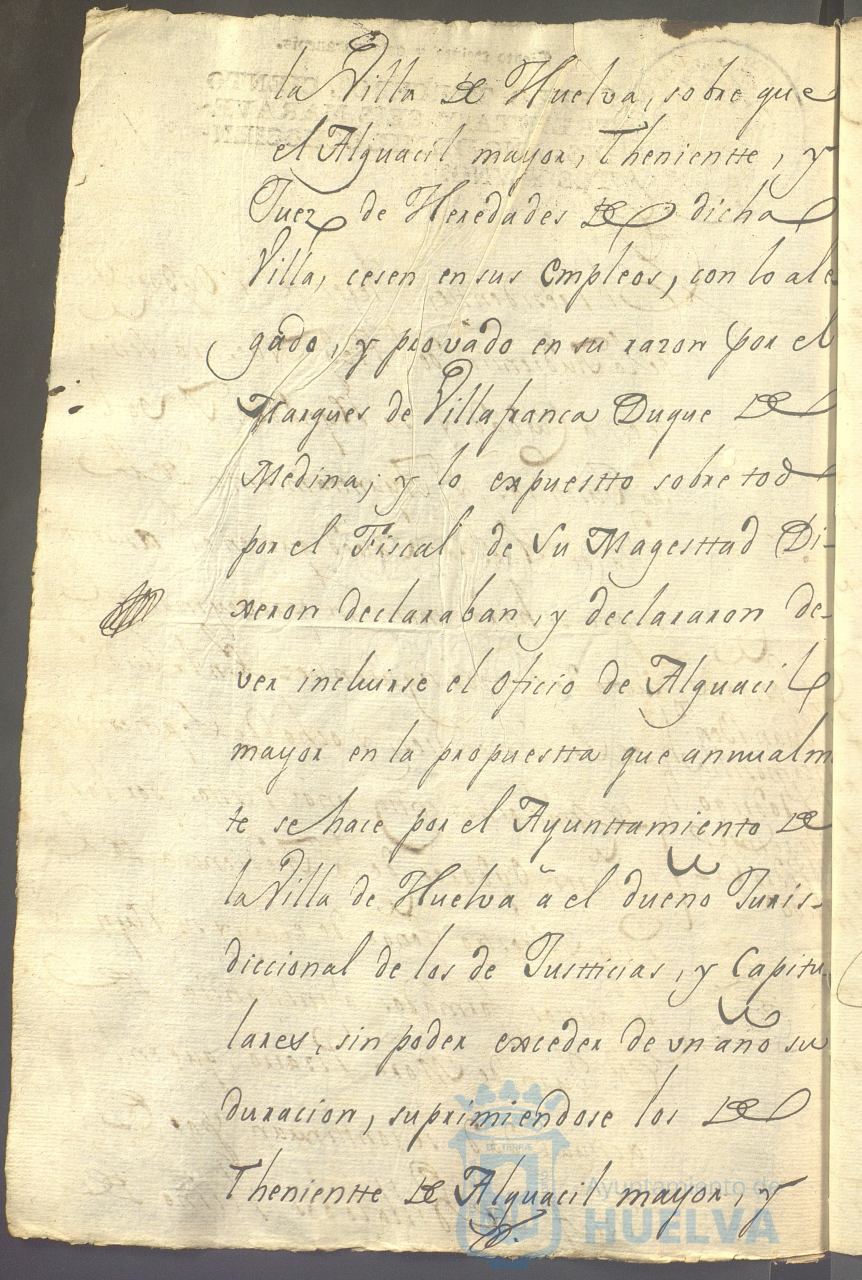 la Villa de Huelva, sobre que
el Alguacil mayor, Thenientte, y
Juez de Heredades de dicha
Villa, cesen en sus Empleos, con lo ale
gado, y provado en su razon por el
Marques de Villafranca Duque de
Medina, y lo expuestto sobre todo
por el Fiscal de Su Magesttad Di-
xeron declaraban, y declararon de-
ver incluirse el oficio de Alguacil
mayor en la propuestta que annualm
te se hace por el Ayunttamiento de
la Villa de Huelva à el dueño Juris-
diccional de los de Justticias, y Capitu
lares, sin poder exceder de un año su
duracion, suprimiendose los de
Thenientte de Alguacil mayor, y
Ayuntamiento de
HUELVA